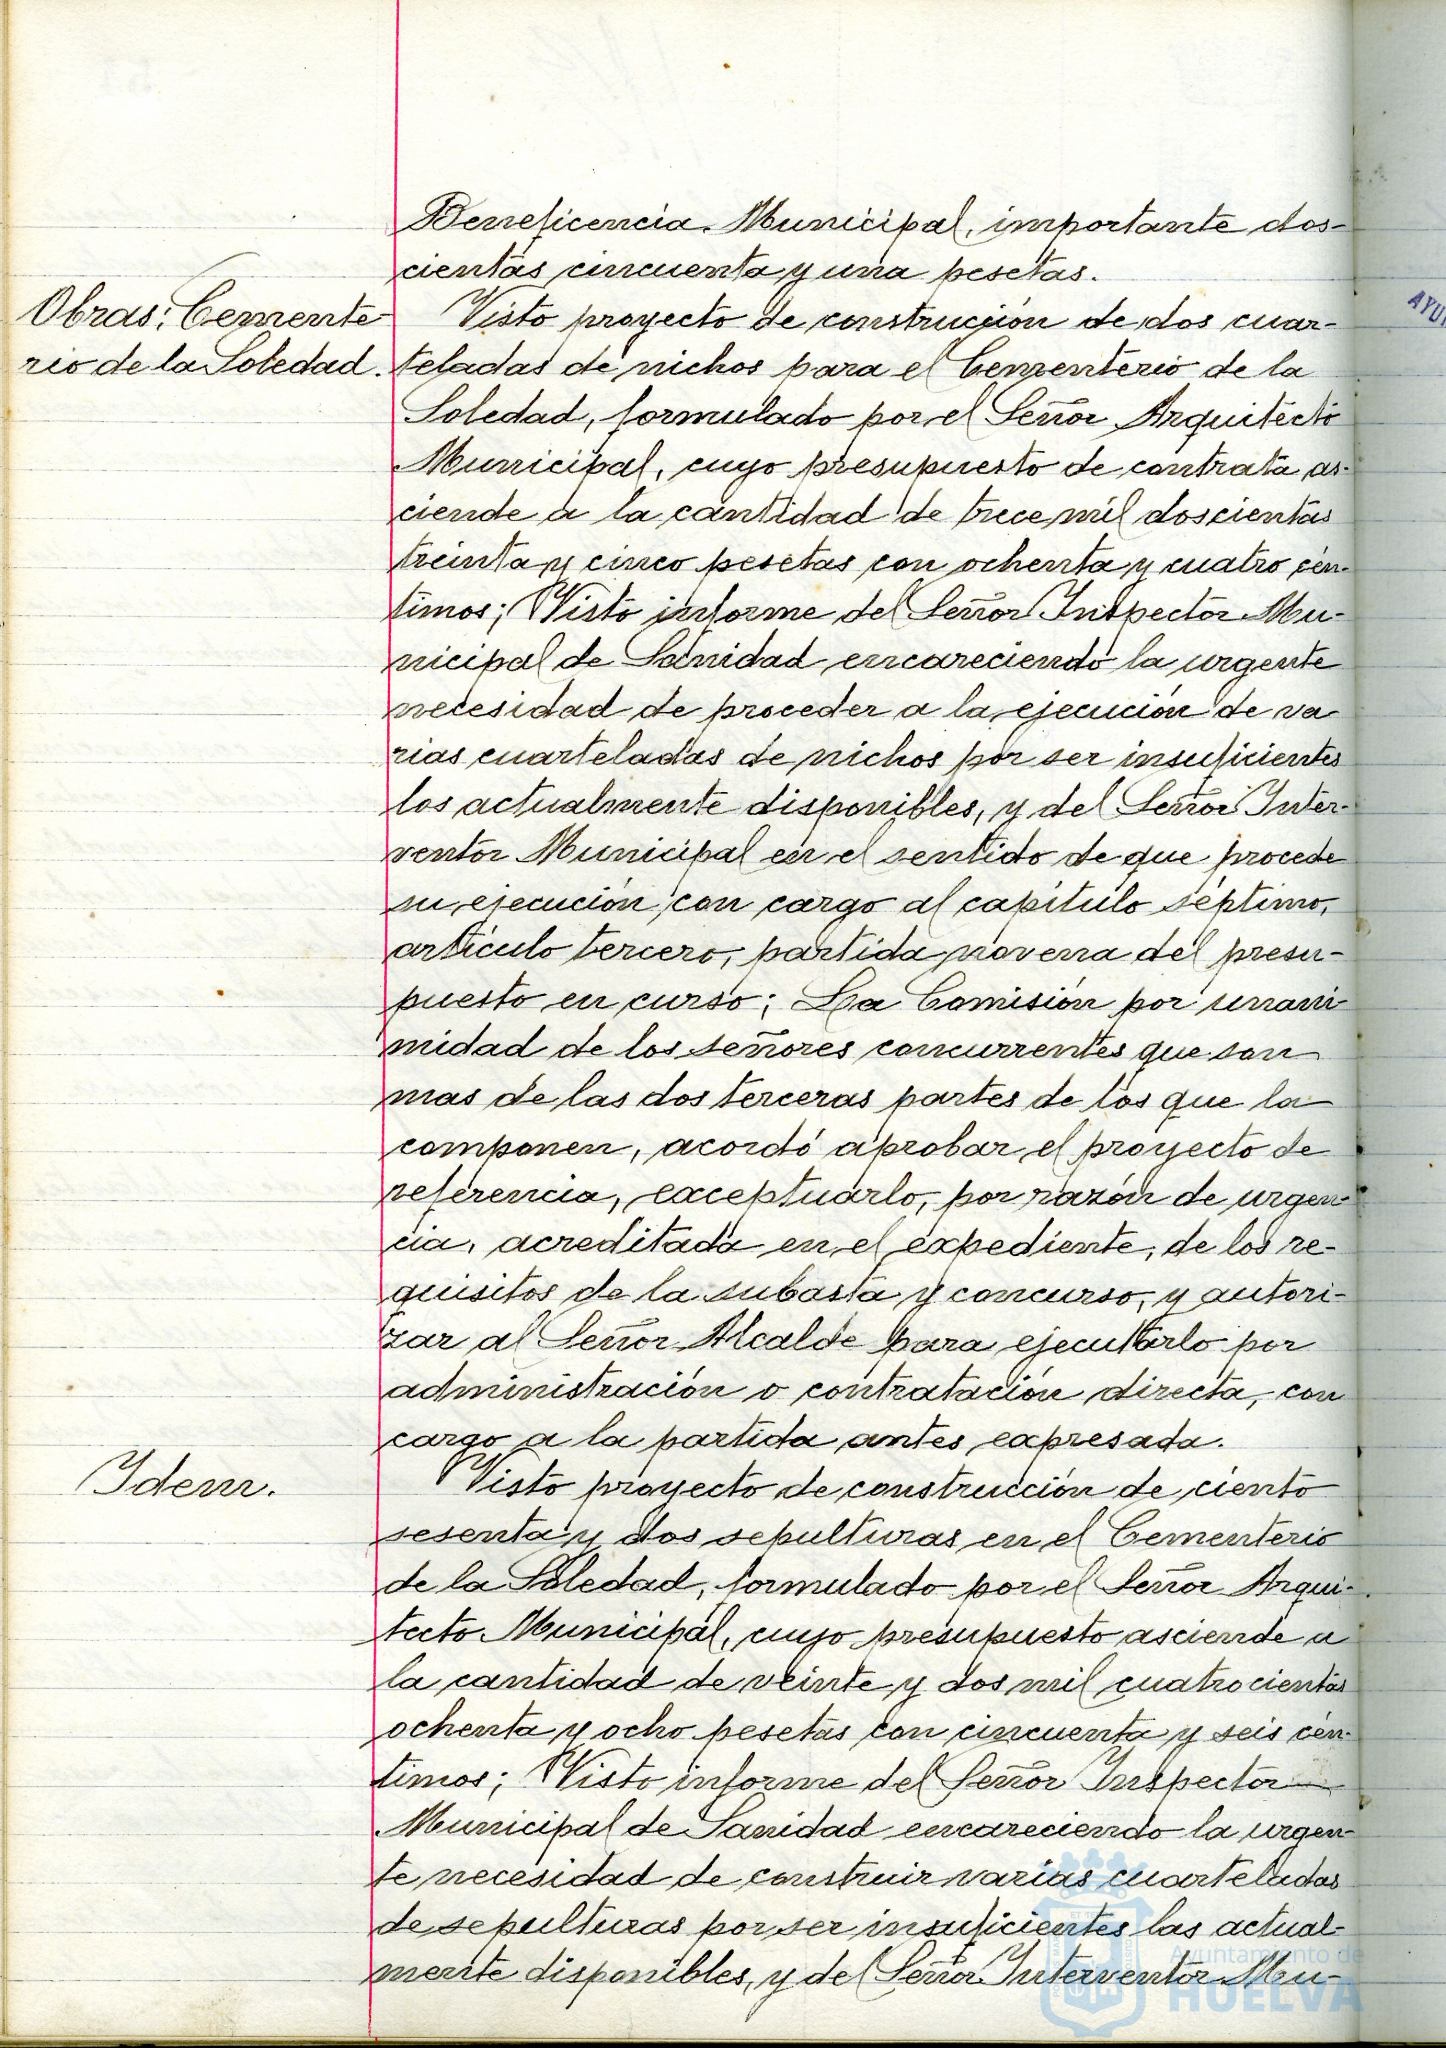 Beneficencia Municipal, importante dos-
cientas cincuenta y una pesetas.
Obras: Cemente
rio de la Soledad.
Visto proyecto de construcción de dos cuar-
teladas de nichos para el Cementerio de la
Soledad, formulado por el Señor Arquitecto
Municipal, cuyo presupuesto de contrata as-
ciende a la cantidad de trece mil doscientas
treinta y cinco pesetas con ochenta y cuatro cén-
timos; Visto informe del Señor Inspector Mu-
nicipal de Sanidad encareciendo la urgente
necesidad de proceder a la ejecución de va
rias cuarteladas de nichos por ser insuficientes
los actualmente disponibles, y del Señor Inter-
ventor Municipal en el sentido de que procede
su ejecución con cargo al capítulo séptimo,
artículo tercero, partida novena del presu-
puesto en curso; La Comisión por unani
midad de los señores concurrentes que son
mas de las dos terceras partes de los que la
componen, acordó aprobar el proyecto de
referencia, exceptuarlo, por razón de urgen
cia, acreditada en el expediente, de los re-
quisitos de la subasta y concurso, y autori-
zar al Señor Alcalde para ejecutarlo por
administración o contratación directa, con
cargo a la partida antes expresada.
Idem.
Visto proyecto de construcción de ciento
sesenta y dos sepulturas en el Cementerio
de la Soledad, formulado por el Señor Arqui-
tecto Municipal, cuyo presupuesto asciende a
la cantidad de veinte y dos mil cuatrocientas
ochenta y ocho pesetas con cincuenta y seis cén-
timos; Visto informe del Señor Inspector
Municipal de Sanidad encareciendo la urgen
te necesidad de construir varias cuarteladas
de sepulturas por ser insuficientes las actual-
mente disponibles, y del Señor Interventor Mu-
AYU
Ayuntamiento de
HUELVA